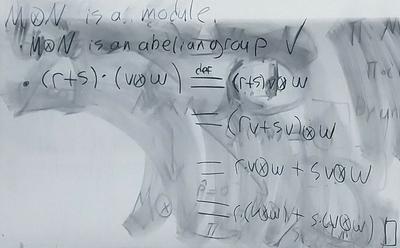 M⊗N is a module.
• M⊗N is an abelian group ✓
• (r+s)·(v⊗w) def= (r+s)v⊗w
= (rv+sv)⊗w
= rv⊗w + sv⊗w
= r·(v⊗w) + s·(v⊗w) □